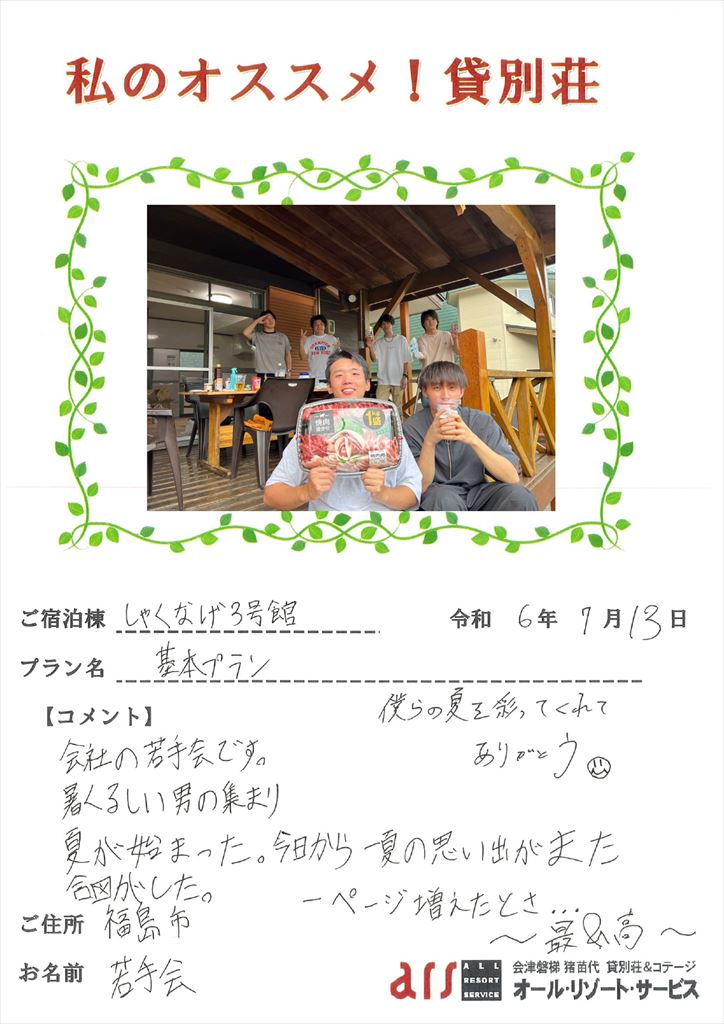 私のオススメ!貸別荘
焼肉
1kg盛
ご宿泊棟 しゃくなげ3号館
令和 6年 7月13日
プラン名 基本プラン
【コメント】
会社の若手会です。
暑くるしい男の集まり
夏が始まった。
合図がした。
今日から一夏の思い出がまた
一ページ増えたとさ...
〜最&高〜
僕らの夏を彩ってくれて
ありがとう
ご住所 福島市
お名前 若手会
ars
ALL
RESORT
SERVICE
会津磐梯 猪苗代 貸別荘&コテージ
オール・リゾート・サービス